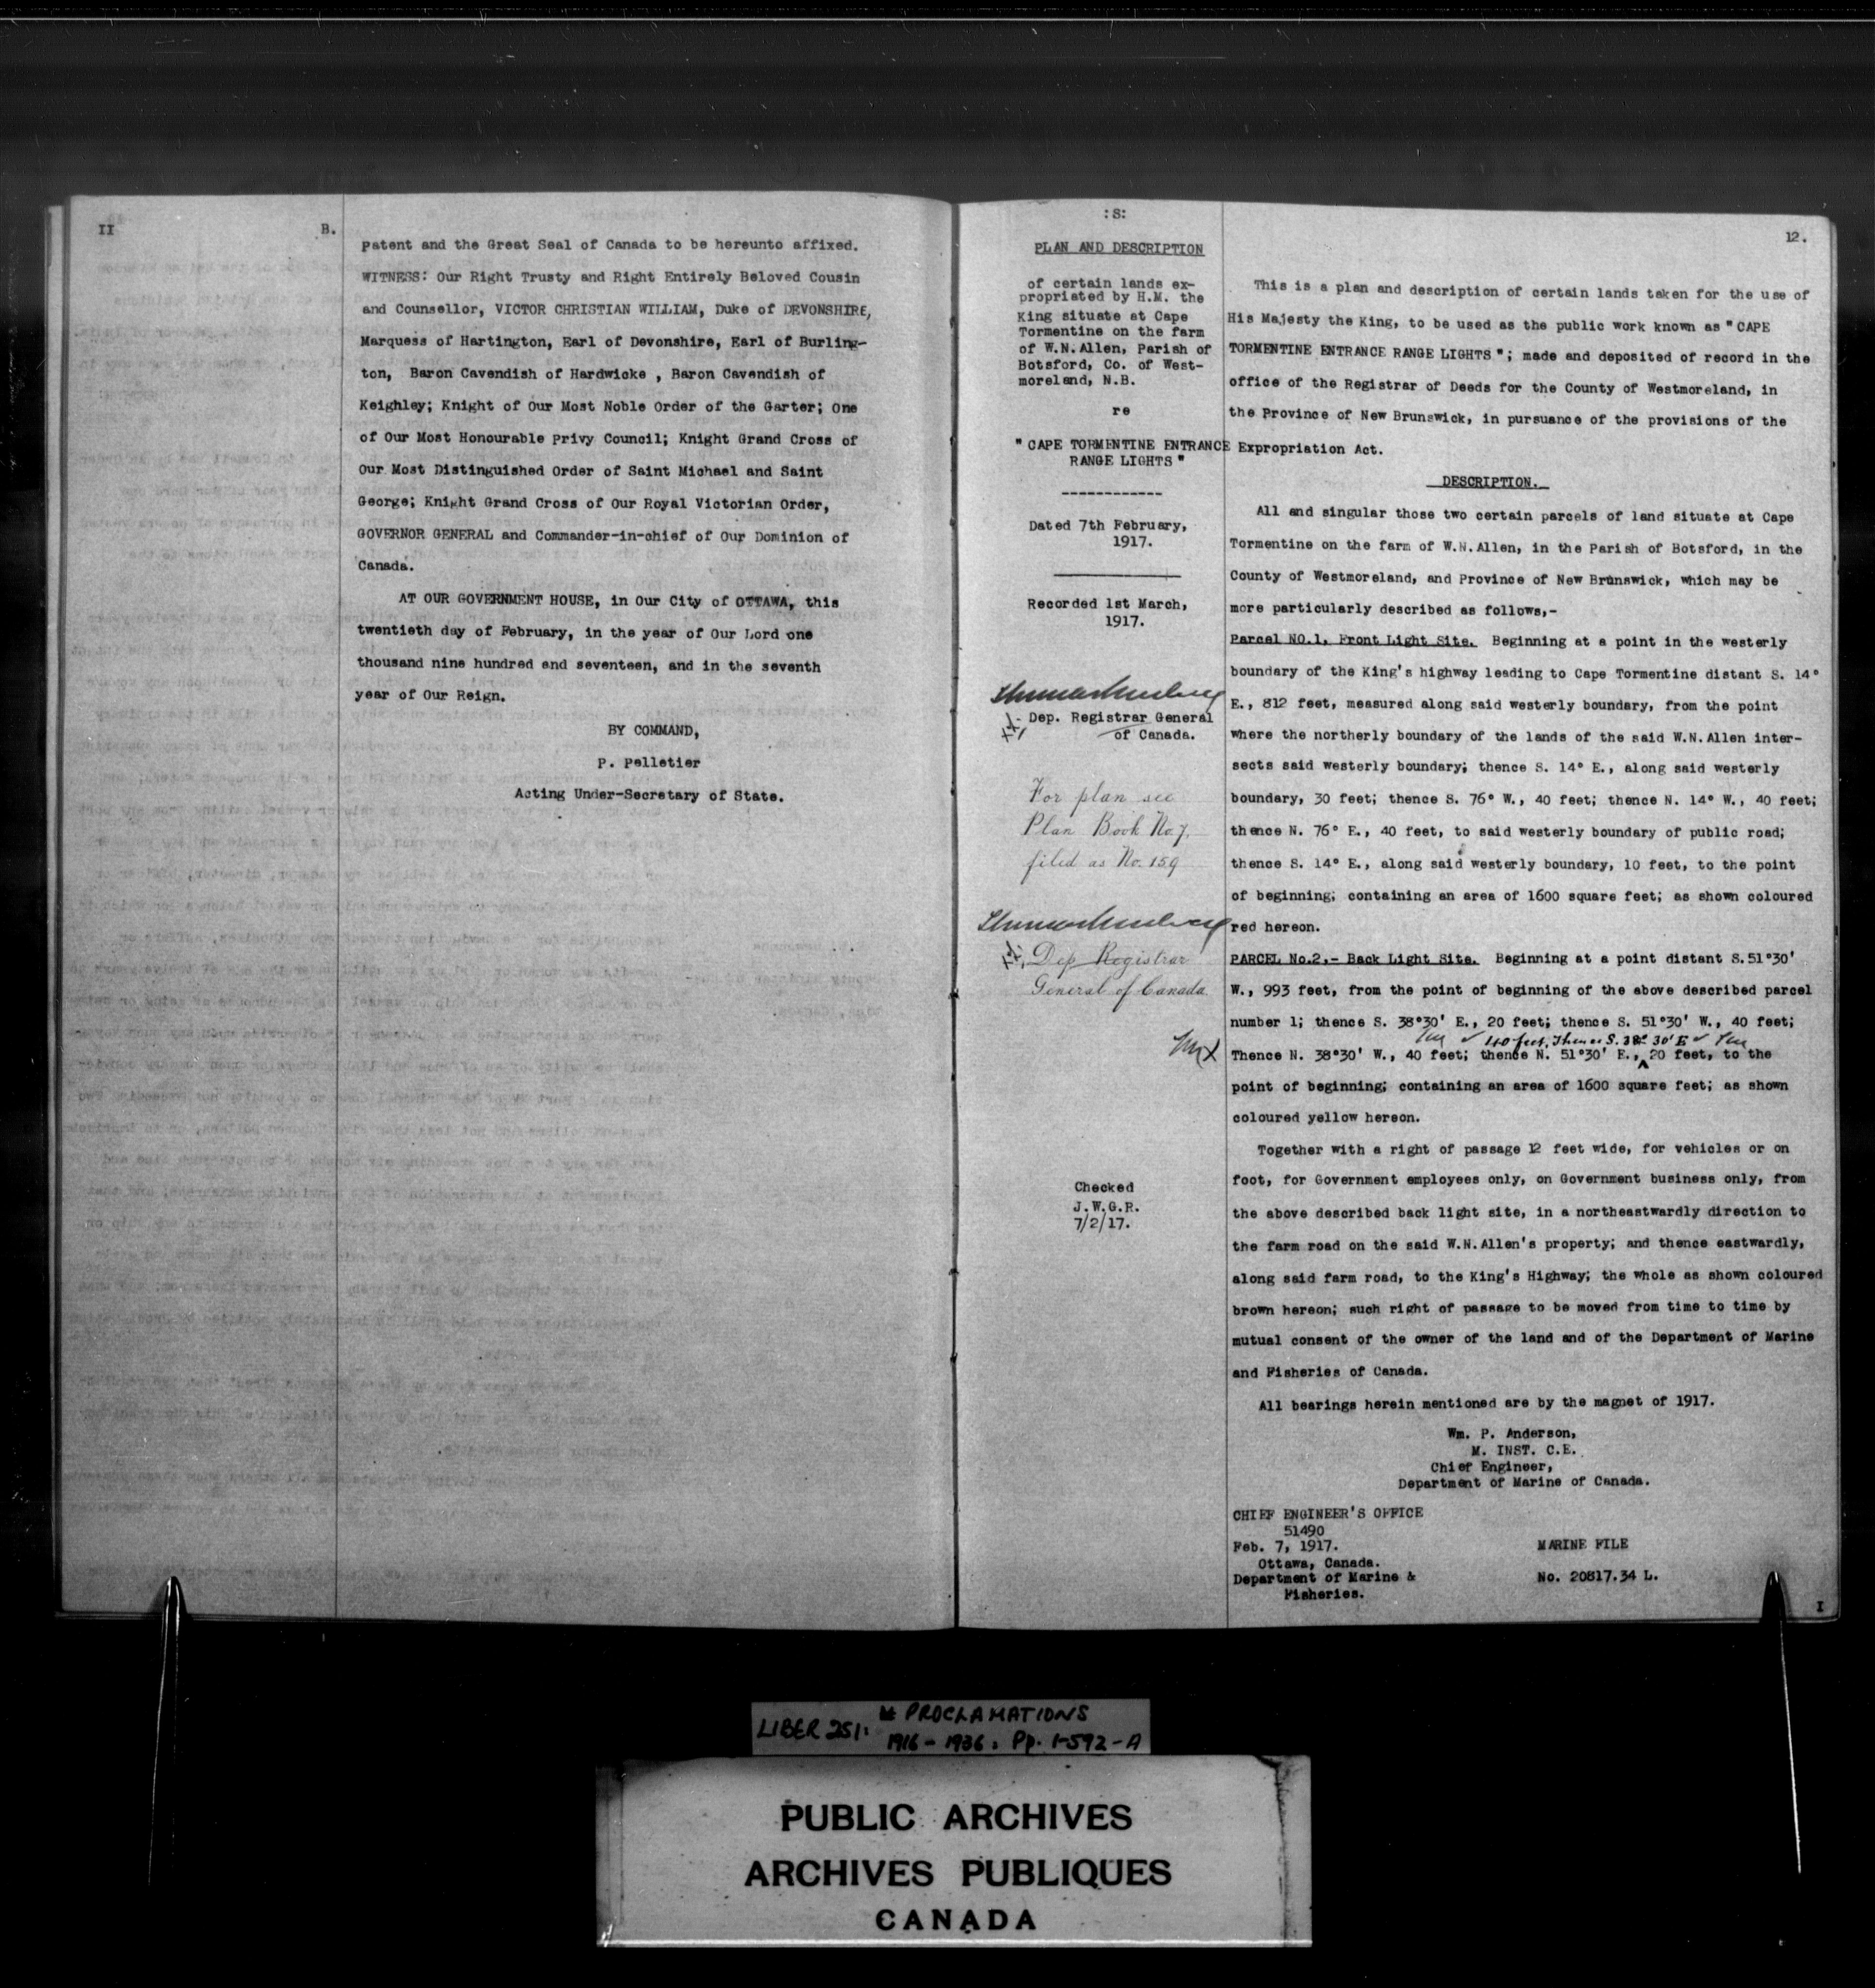 II B.
patent and the Great Seal of Canada to be hereunto affixed.
WITNESS: Our Right Trusty and Right Entirely Beloved Cousin
and Counsellor, VICTOR CHRISTIAN WILLIAM, Duke of DEVONSHIRE,
Marquess of Hartington, Earl of Devonshire, Earl of Burling-
ton, Baron Cavendish of Hardwicke , Baron Cavendish of
Keighley; Knight of Our Most Noble Order of the Garter; One
of Our Most Honourable Privy Council; Knight Grand Cross of
Our Most Distinguished Order of Saint Michael and Saint
George; Knight Grand Cross of Our Royal Victorian Order,
GOVERNOR GENERAL and Commander-in-chief of Our Dominion of
Canada.
AT OUR GOVERNMENT HOUSE, in Our City of OTTAWA, this
twentieth day of February, in the year of Our Lord one
thousand nine hundred and seventeen, and in the seventh
year of Our Reign.
BY COMMAND,
P. Pelletier
Acting Under-Secretary of State.
:8:
PLAN AND DESCRIPTION
of certain lands ex-
propriated by H.M. the
King situate at Cape
Tormentine on the farm
of W.N.Allen, Parish of
Botsford, Co. of West-
moreland, N.B.
re
" CAPE TORMENTINE ENTRANCE
RANGE LIGHTS "
Dated 7th February,
1917.
Recorded 1st March,
1917.
Dep. Registrar General
of Canada.
For plan see
Plan Book No 7.
filed as No. 159
Dep Registrar
General of Canada
Checked
J.W.G.R.
7/2/17.
12.
This is a plan and description of certain lands taken for the use of
His Majesty the King, to be used as the public work known as " CAPE
TORMENTINE ENTRANCE RANGE LIGHTS "; made and deposited of record in the
office of the Registrar of Deeds for the County of Westmoreland, in
the Province of New Brunswick, in pursuance of the provisions of the
Expropriation Act.
DESCRIPTION.
All and singular those two certain parcels of land situate at Cape
Tormentine on the farm of W.N.Allen, in the Parish of Botsford, in the
County of Westmoreland, and Province of New Brunswick, which may be
more particularly described as follows,-
Parcel NO.1, Front Light Site. Beginning at a point in the westerly
boundary of the King's highway leading to Cape Tormentine distant S. 14°
E., 812 feet, measured along said westerly boundary, from the point
where the northerly boundary of the lands of the said W.N.Allen inter-
sects said westerly boundary; thence S. 14° E., along said westerly
boundary, 30 feet; thence S. 76° W., 40 feet; thence N. 14° W., 40 feet;
thence N. 76° E., 40 feet, to said westerly boundary of public road;
thence S. 14° E., along said westerly boundary, 10 feet, to the point
of beginning; containing an area of 1600 square feet; as shown coloured
red hereon.
PARCEL No.2,- Back Light Site. Beginning at a point distant S.51°30'
W., 993 feet, from the point of beginning of the above described parcel
number 1; thence S. 38°30' E., 20 feet; thence S. 51°30' W., 40 feet;
40 feet, Thence S. 38° 30' E
Thence N. 38°30' W., 40 feet; thence N. 51°30' E., 20 feet, to the
point of beginning; containing an area of 1600 square feet; as shown
coloured yellow hereon.
Together with a right of passage 12 feet wide, for vehicles or on
foot, for Government employees only, on Government business only, from
the above described back light site, in a northeastwardly direction to
the farm road on the said W.N.Allen's property; and thence eastwardly,
along said farm road, to the King's Highway; the whole as shown coloured
brown hereon; such right of passage to be moved from time to time by
mutual consent of the owner of the land and of the Department of Marine
and Fisheries of Canada.
All bearings herein mentioned are by the magnet of 1917.
Wm. P. Anderson,
M. INST. C.E.
Chief Engineer,
Department of Marine of Canada.
CHIEF ENGINEER'S OFFICE
51490
Feb. 7, 1917.
Ottawa, Canada.
Department of Marine &
Fisheries.
MARINE FILE
No. 20817.34 L.
I
LIBER 251: PROCLAMATIONS
1916 - 1936. Pp. 1-592-A
PUBLIC ARCHIVES
ARCHIVES PUBLIQUES
CANADA